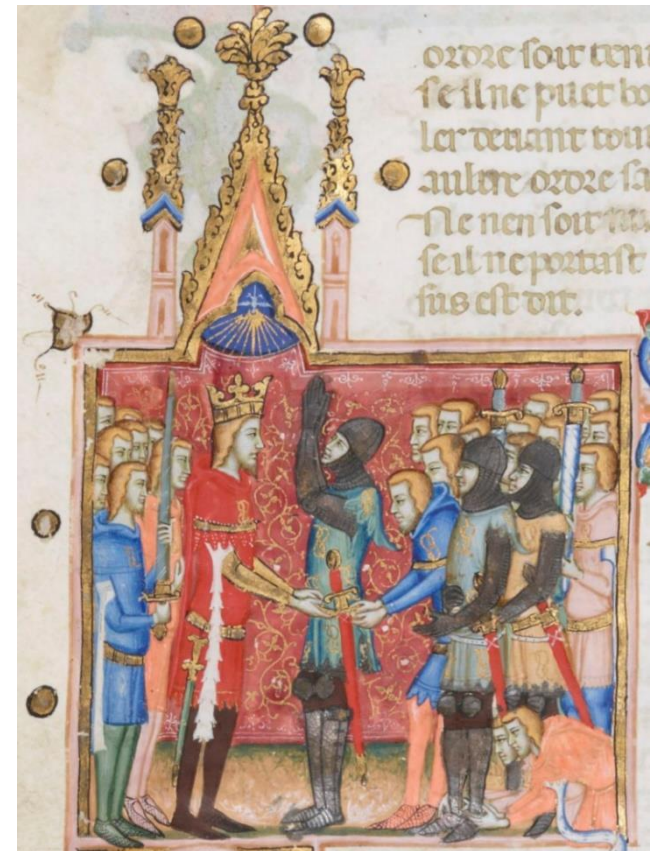 ordre soit teni
se il ne puet bo
ler devant tout
aultre ordre sa
Ne nen soit
se il ne portast
sus est dit.